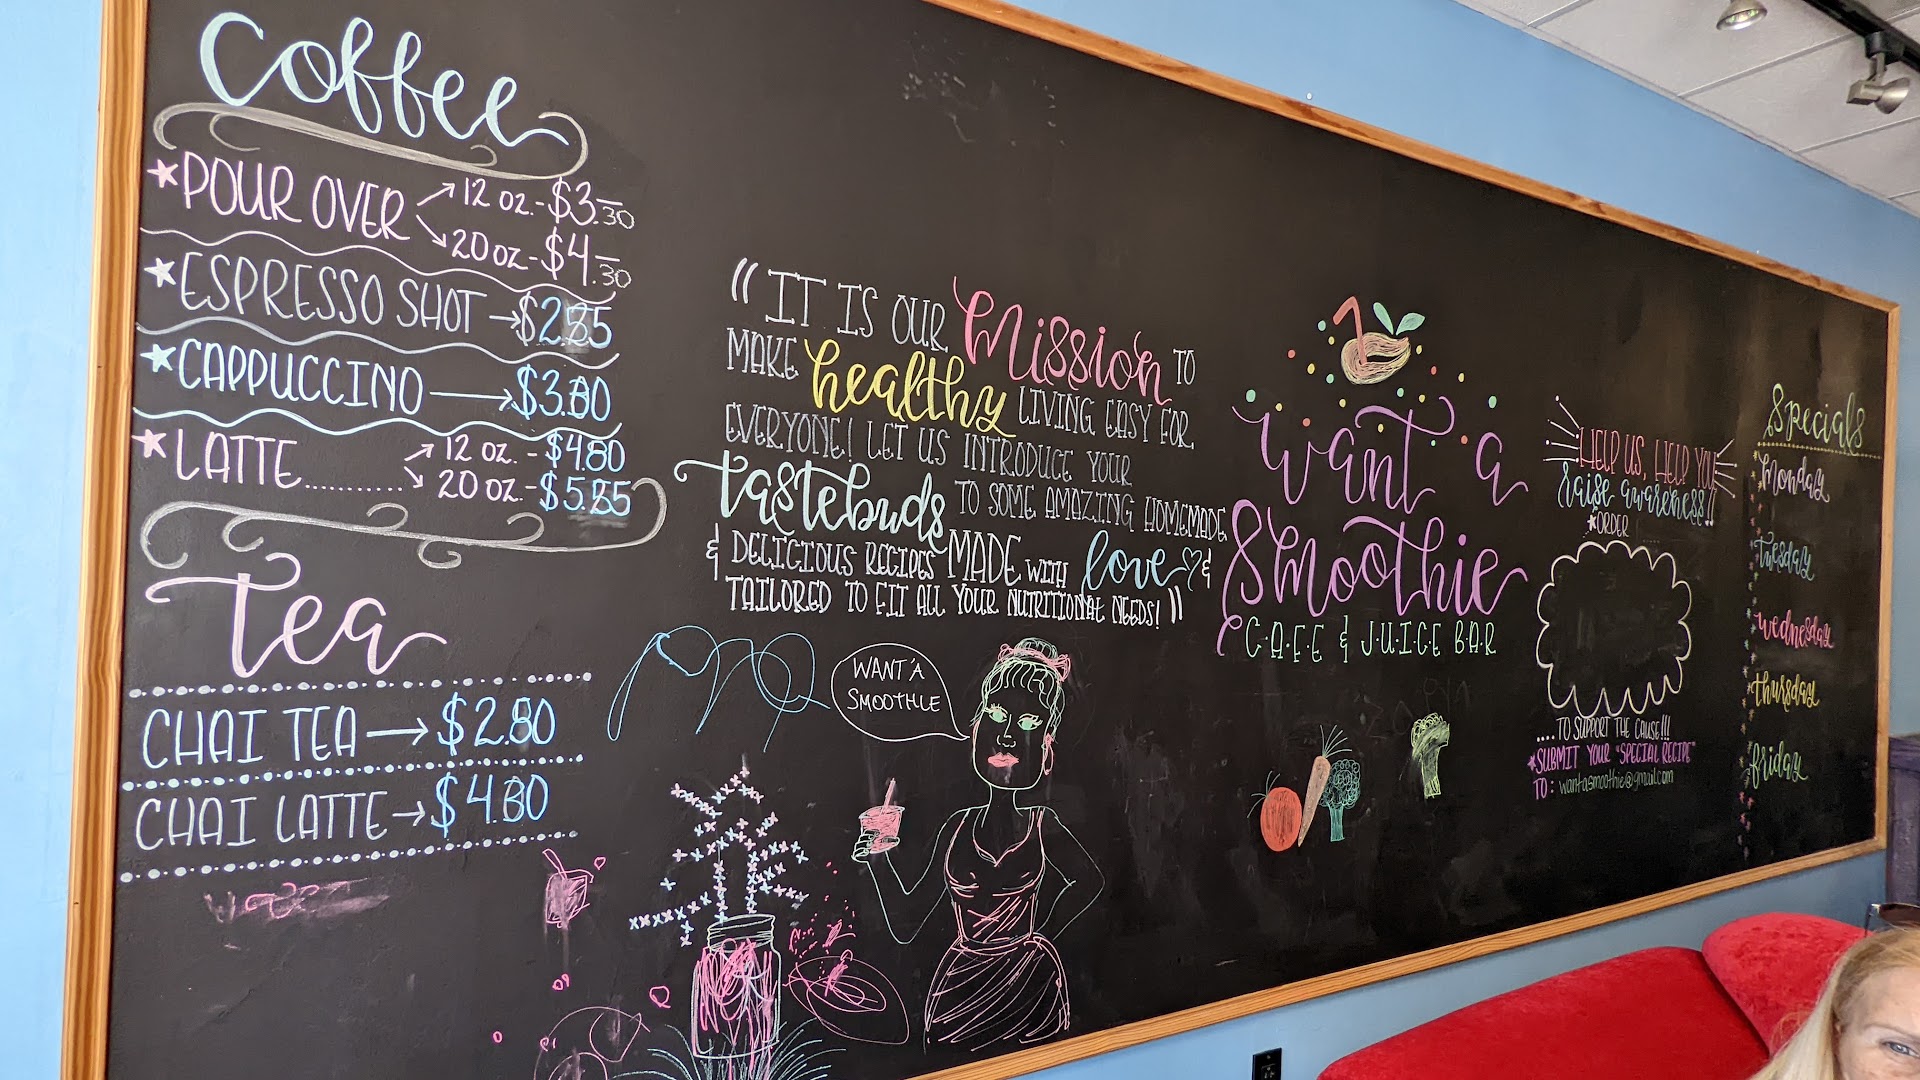 Coffee
*POUR OVER
12 oz.-$3.30
20 oz-$4.30
*ESPRESSO SHOT →$2.85
*CAPPUCCINO →$3.80
*LATTE..........
12 oz. - $4.80
20 oz.-$5.85
Tea
CHAI TEA → $2.80
CHAI LATTE → $4.80
"IT IS OUR Mission TO
MAKE healthy LIVING EASY FOR
EVERYONE! LET US INTRODUCE YOUR
tastebuds TO SOME AMAZING HOMEMADE
& DELICIOUS RECIPES MADE WITH love &
TAILORED TO FIT ALL YOUR NUTRITIONAL NEEDS!"
WANT A
SMOOTHIE
want a
Smoothie
C·A·F·E & J·U·I·C·E BAR
HELP US, HELP YOU
Raise awareness!!
*ORDER
....TO SUPPORT THE CAUSE!!!
*SUBMIT YOUR "SPECIAL RECIPE"
TO: wantasmoothie@gmail.com
Specials
Monday
tuesday
wednesday
thursday
friday